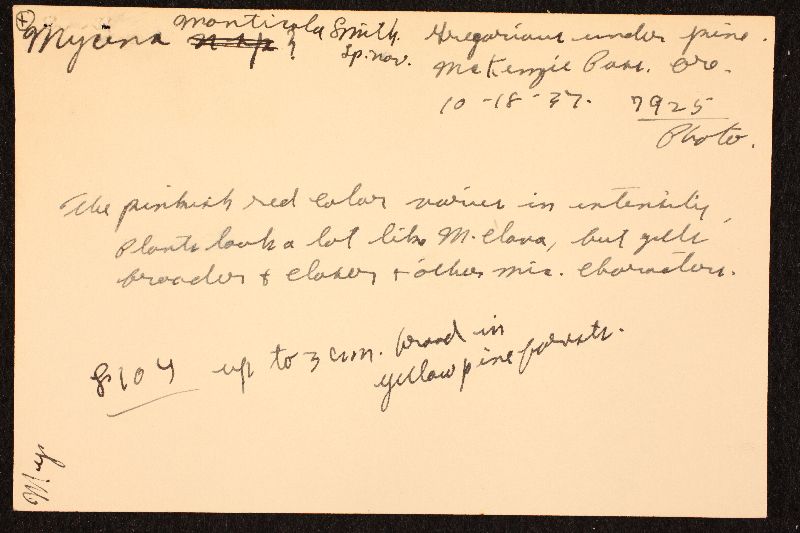 Mycena monticola Smith
n. sp. ? sp. nov.
Gregarious under pine.
McKenzie Pass. Ore.
10-18-37. 7925
Photo.
The pinkish red color varies in intensity,
Plants look a lot like M. elova, but gills
broader & closer & other mic. characters.
8104 up to 3 cm. broad in
yellow pine forests.
Myc